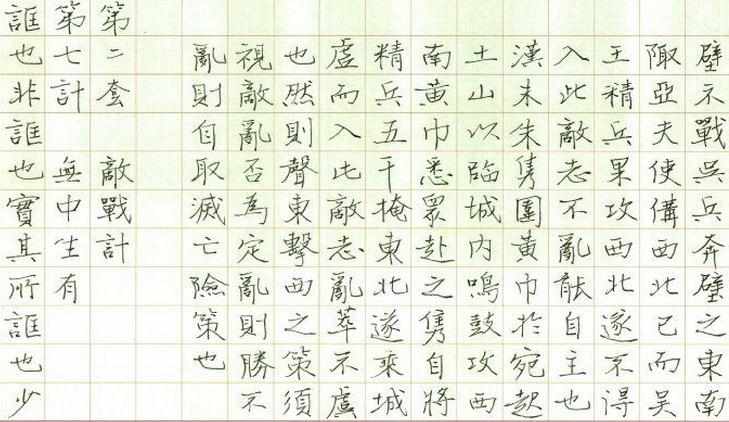 壁不戰吳兵奔壁之東南
陬亞夫使備西北已而吳
王精兵果攻西北遂不得
入此敵志不亂能自主也
漢末朱雋圍黃巾於宛起
土山以臨城內鳴鼓攻西
南黃巾悉眾赴之雋自將
精兵五千掩東北遂乘城
虛而入此敵志亂萃不虞
也然則聲東擊西之策須
視敵亂否為定亂則勝不
亂則自取滅亡險策也
第二套 敵戰計
第七計 無中生有
誆也非誆也實其所誆也少